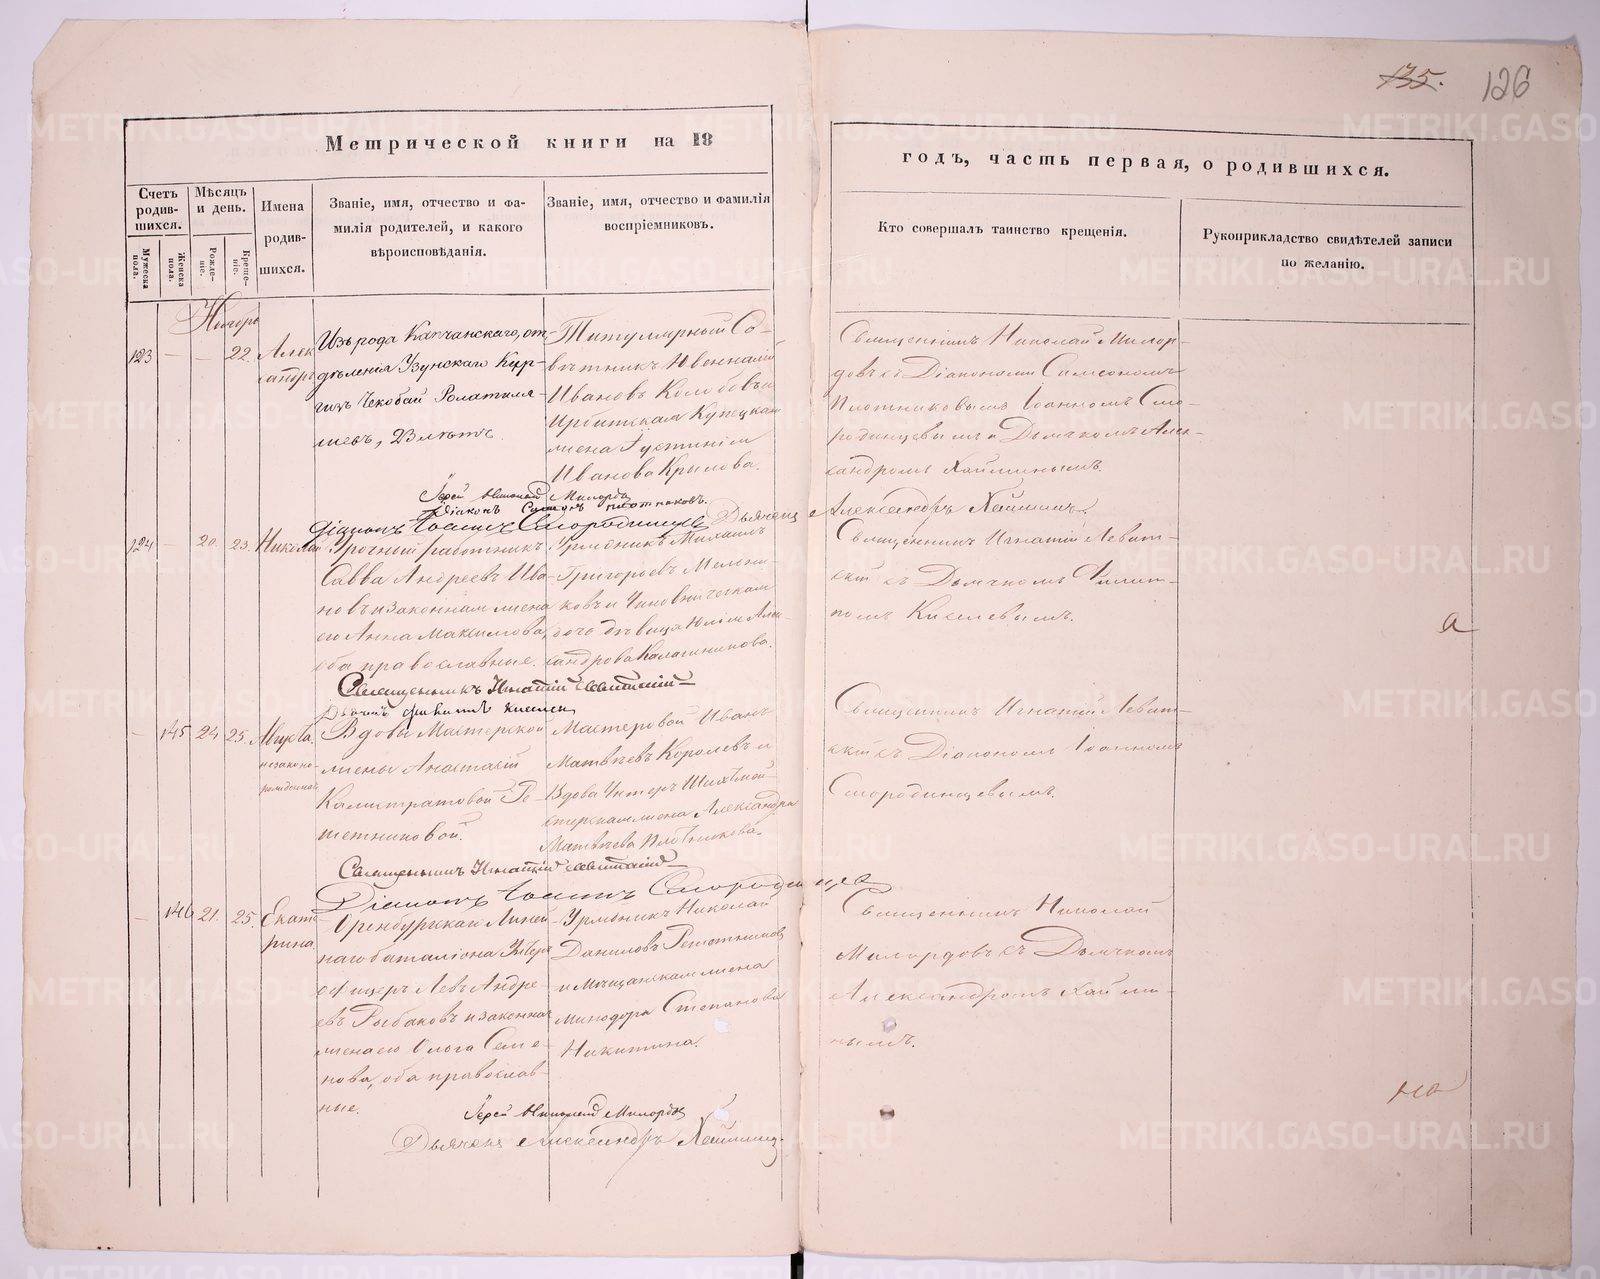 135.
126
Метрической книги на 18
годъ, часть первая, о родившихся.
Счетъ родив-шихся.
Мужеска пола.
Женска пола.
Мѣсяцъ и день.
Рожде-ніе.
Креще-ніе.
Имена родив-шихся.
Званіе, имя, отчество и фа-
милія родителей, и какого
вѣроисповѣданія.
Званіе, имя, отчество и фамилія
воспріемниковъ.
Кто совершалъ таинство крещенія.
Рукоприкладство свидѣтелей записи
по желанію.
123
22.
Алек
сандръ
Изъ рода Капчанскаго, от-
дѣленія Узунскаго Кир-
гизъ Чекобай
23 лѣтъ.
Титулярный Со-
вѣтникъ
Ивановъ Колобовъ и
Ирбитская Купецкая
жена Іустинія
Иванова Крылова.
Священникъ Николай Милор-
довъ съ Діаконами Самсономъ
Плотниковымъ Іоанномъ Смо-
родинцевымъ и Дьячкомъ Алек-
сандромъ Хайминымъ.
Іерей Николай Милордовъ
Діаконъ Самсонъ Плотниковъ.
Діаконъ Іоаннъ Смородинцевъ Дьячекъ Александръ Хайминъ.
124
20.
23.
Николай
Урочный работникъ
Савва Андреевъ Ива-
новъ и законная жена
его Анна Максимова,
оба православные.
Урядникъ Михаилъ
Григорьевъ Мельни-
ковъ и Чиновническая
дочь дѣвица Юлія Алек-
сандрова Калашникова.
Священникъ Игнатій Левит-
скій съ Дьячкомъ Филип-
помъ Киселевымъ.
Священникъ Игнатій Левитскій
Дьячекъ Филиппъ Киселевъ
145
24
25.
Августа.
незаконно-
рожденная
Вдовы Мастерской
жены Анастасіи
Калистратовой Ре-
шетниковой.
Мастеровой Иванъ
Матвѣевъ Королевъ и
Вдова Унтеръ Шихтмей-
стерская жена Александра
Матвѣева Плотникова.
Священникъ Игнатій Левит-
скій съ Діакономъ Іоанномъ
Смородинцевымъ.
Священникъ Игнатій Левитскій
Діаконъ Іоаннъ Смородинцевъ
146
21.
25.
Екате
рина
Оренбурскаго Линей
наго баталіона Унтеръ
офицеръ Левъ Андре-
евъ Рыбаковъ и законная
жена его Ольга Семе-
нова, оба православ-
ные.
Урядникъ Николай
Даниловъ Решетниковъ
и Мѣщанская жена
Минодора Степанова
Никитина.
Священникъ Николай
Милордовъ съ Дьячкомъ
Александромъ Хайми-
нымъ.
Іерей Николай Милордовъ
Дьячекъ Александръ Хайминъ.
METRIKI.GASO-URAL.RU